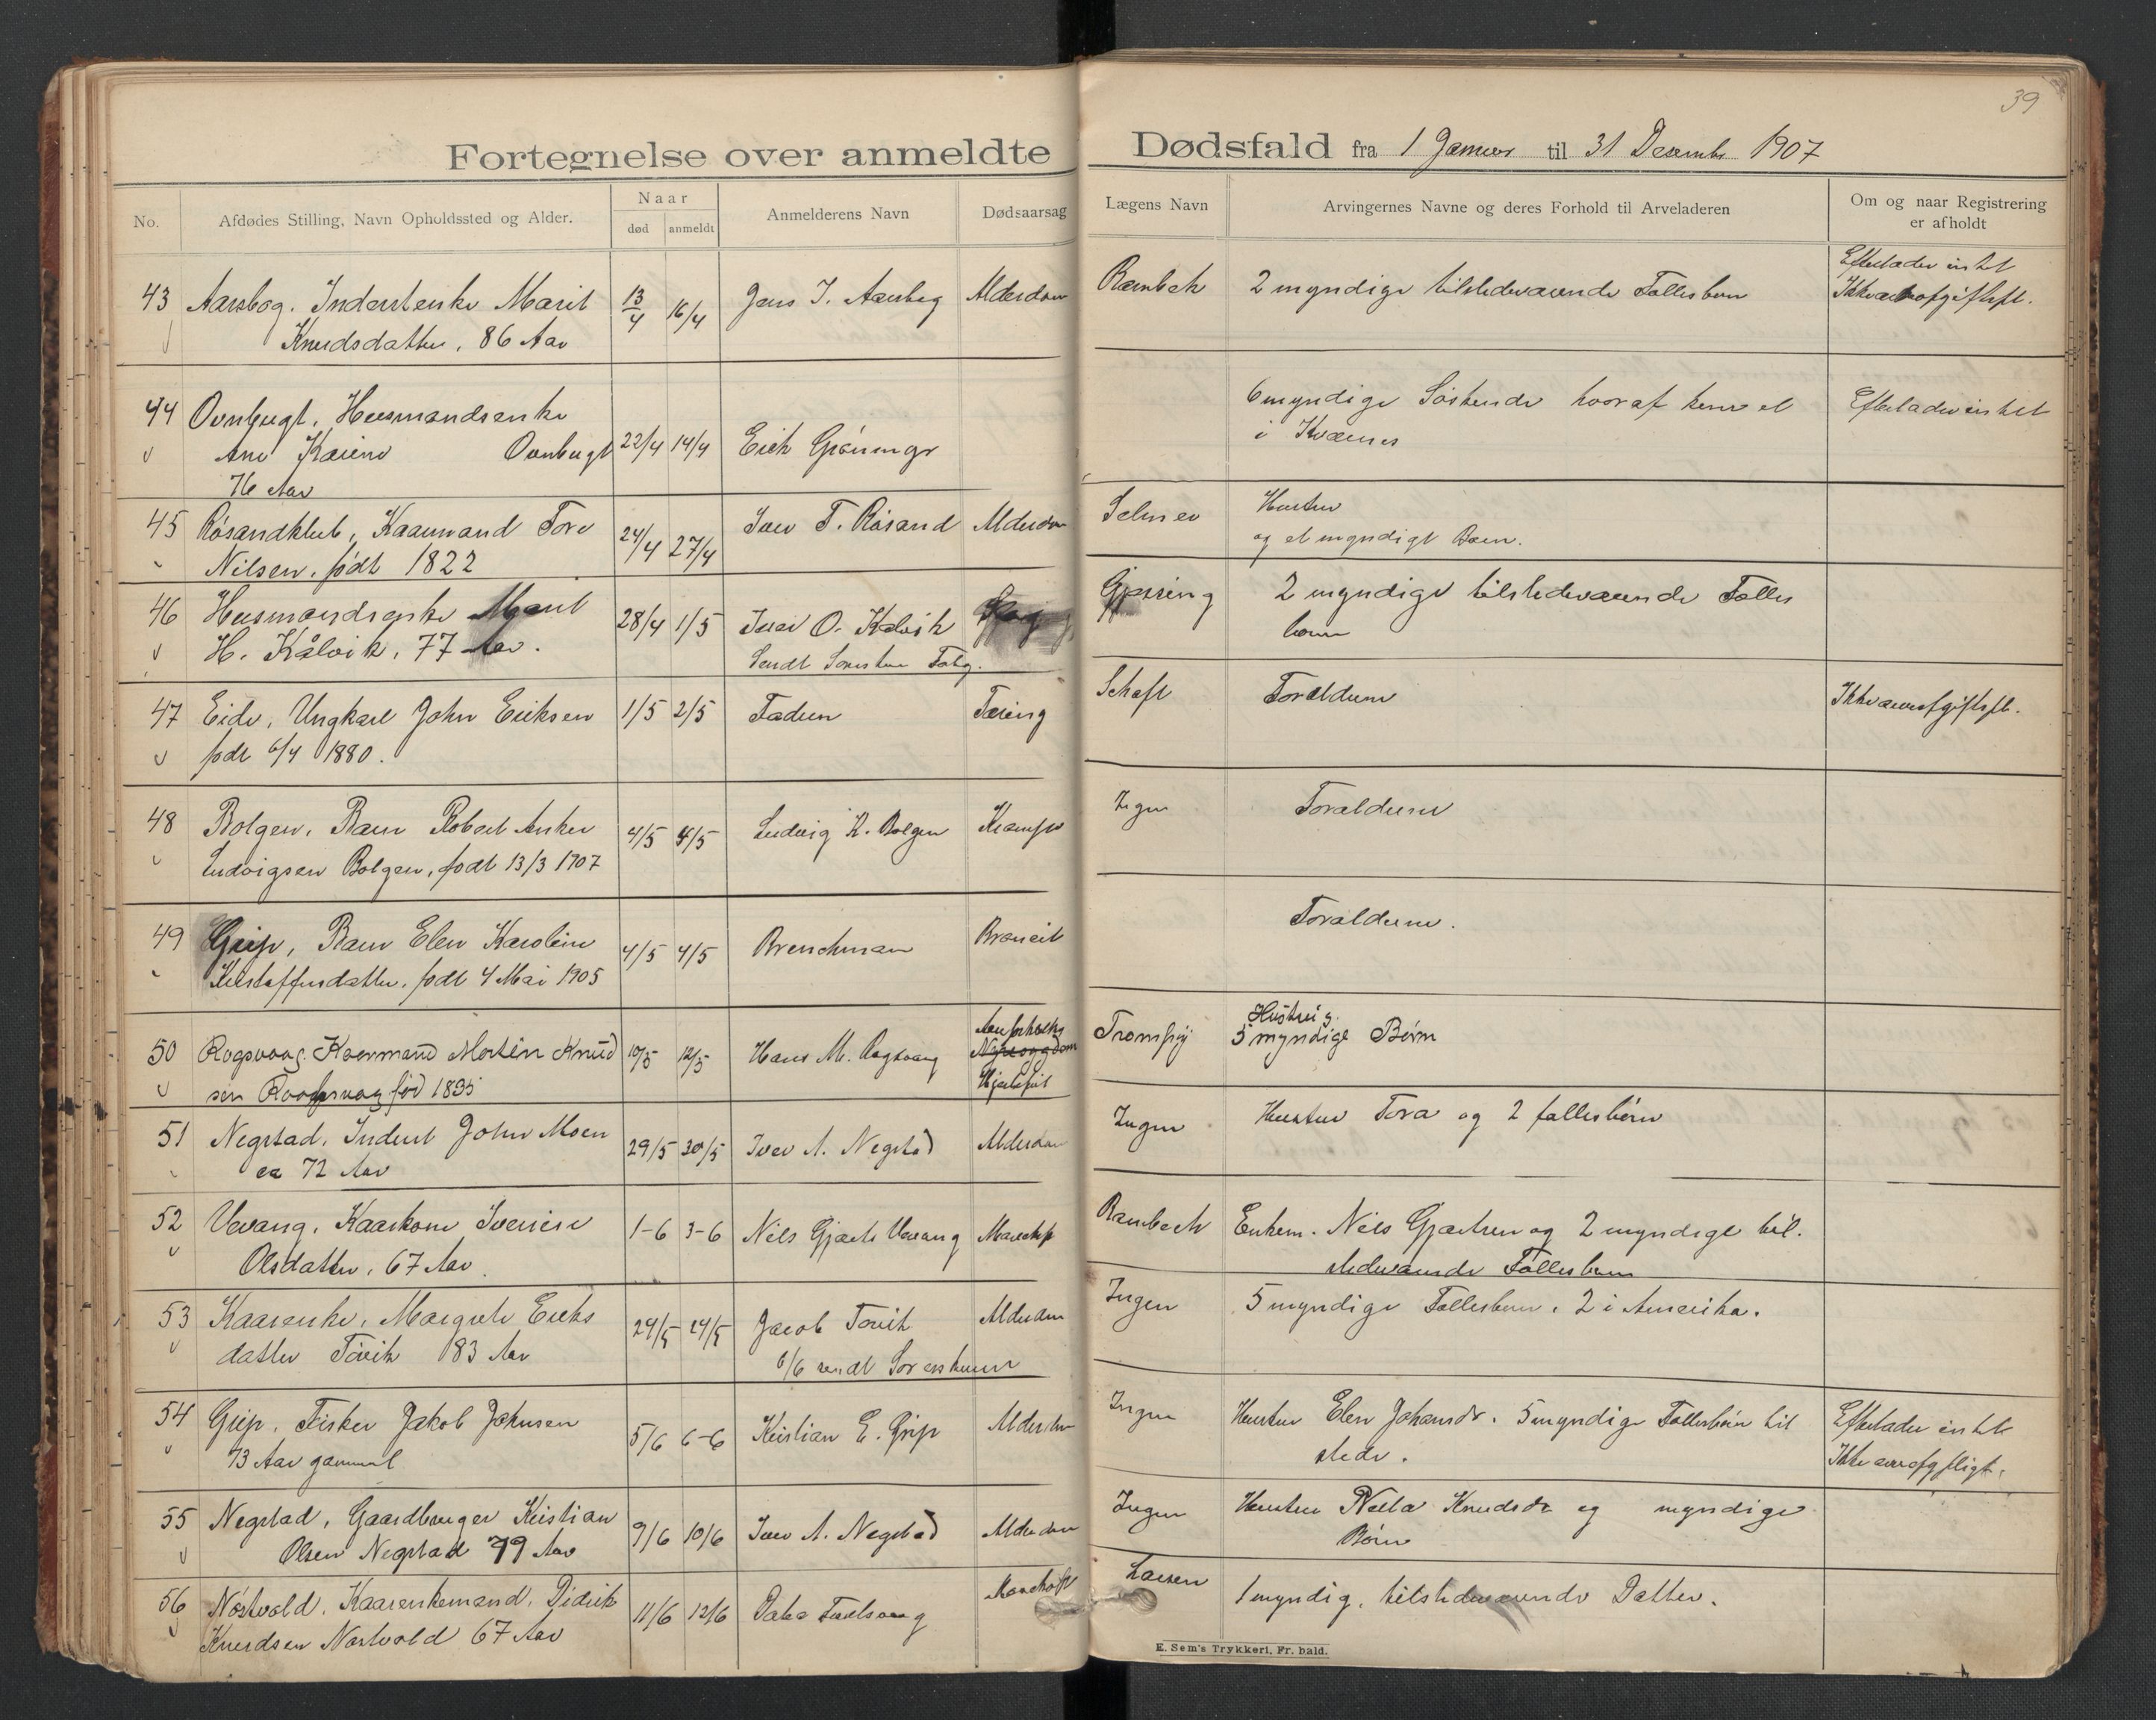 39
Fortegnelse over anmeldte Dødsfald fra 1 Januar til 31 Desembr 1907
No.
Afdødes Stilling, Navn Opholdssted og Alder.
Naar
død
anmeldt
Anmelderens Navn
Dødsaarsag
Lægens Navn
Arvingernes Navne og deres Forhold til Arveladeren
Om og naar Registrering
er afholdt
43 Aarsbog. Inderstenke Marit
Knudsdatter, 86 Aar
13/4 16/4 Jens J. Aarsbog Alderdom
Rambech 2 myndige tilstedeværende Fællesbørn
Efterlader intet
Ikke arveafgiftspl.
44 Ovnbugt, Husmandsenke
Ane Ovnbugt
76 Aar
22/4 14/4 Erik
6 myndige Søskende hvoraf et
i Kværnes
Efterlader intet
45 Kaarmand Tore
Nilsen, født 1822
24/4 27/4 Iver T. Røsand Alderdom
Selmer Hustru
og et myndigt Barn.
46 Husmandsenke Marit
H. Kålvik, 77 Aar.
28/4 1/5 Iver O. Kalvik
Sendt
Gjørsing 2 myndige tilstedeværende Fælles
børn
47 Eide, Ungkarl John Eriksen
født 6/4 1880.
1/5 2/5 Faderen Tæring
Schaft Forældrene
Ikke arveafgiftspl.
48 Bolgen, Barn Robert Anker
Ludvigsen Bolgen, født 13/3 1907
4/5 4/5 Ludvig K. Bolgen Krampe
Ingen Forældrene
49 Grip, Barn Elen Karoline
Kristoffersdatter, født 4 Mai 1905
4/5 4/5 Brenchman Bronkit
Forældrene.
50 Rogsvaag. Kaarmand Morten Knud
sen født 1835
10/5 12/5 Hans M. Rogsvaag
Hjertefeil
Hustru og
5 myndige Børn
51 Negstad, Inderst John Moen
ca 72 Aar
29/5 30/5 Iver A. Negstad Alderdom
Ingen Hustru Tora og 2 fællesbørn
52 Vevang, Kaarkone
Olsdatter, 67 Aar
1-6 3-6 Nils Gjært Vevang
Rambech Enkem. Nils Gjærtsen og 2 myndige til-
stedeværende Fællesbørn
53 Kaarenke, Margrete Eriks
datter Tøvik 83 Aar
24/5 24/5 Jacob Tøvik Alderdom
6/6 sendt Sorenskriveren
Ingen 5 myndige Fællesbørn. 2 i Amerika.
54 Grip. Fisker Jakob Johnsen
73 Aar gammel
5/6 6-6 Kristian E. Grip Alderdom
Ingen Hustru Elen Johansdr. 5 myndige Fællesbørn til
stede.
Efterlader intet
Ikke arveafgpligt.
55 Negstad, Gaardbruger Kristian
Olsen Negstad 79 Aar
9/6 10/6 Iver A. Negstad Alderdom
Ingen Hustru Knudsdr og myndige
Børn
56 Nostvold. Kaarenkemand, Didrik
Knudsen Nostvold 67 Aar
11/6 12/6
Larsen 1 myndig, tilstedeværende Datter.
E. Sem's Trykkeri, Fr. hald.